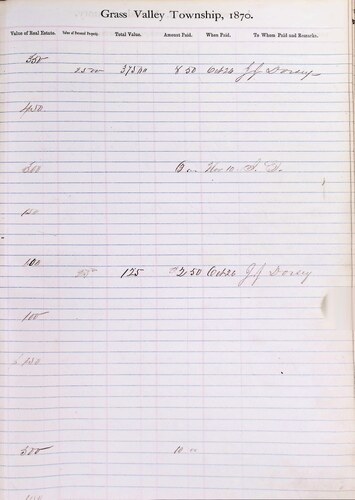 Grass Valley Township, 1870.
Value of Real Estate. Value of Personal Property. Total Value. Amount Paid. When Paid. To Whom Paid and Remarks.
350
25 00 375 00 8 50 Oct 26 J J Dorsey
450
300
6 00 Nov 10
150
100
25 00 125 2 50 Oct 26 J J Dorsey
100
300
10 00